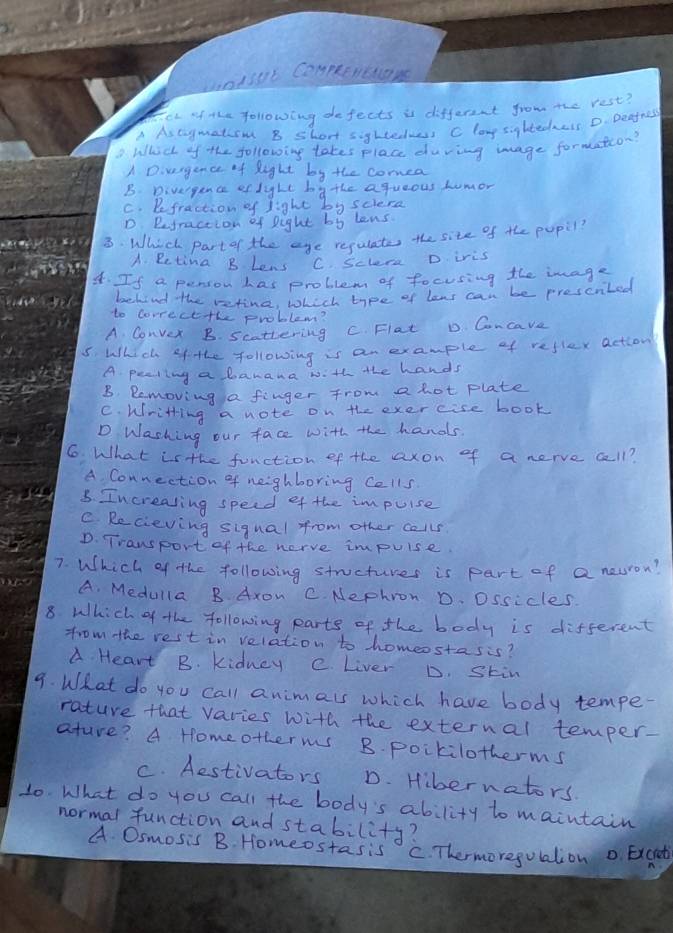 COMPREHENSIVE
of the following defects is different from the rest?
A Astigmatism B Short sightedness C long sightedness D. Deafness
2. Which of the following takes place during image formation?
A Divergence of light by the cornea
B. Divergence of light by the aqueous humor
C. Refraction of light by sclera
D. Refraction of light by lens.
3. Which part of the eye regulates the size of the pupil?
A. Retina B Lens C. Sclera D. iris
4. If a person has problem of focusing the image
behind the retina, which type of lens can be prescribed
to correct the problem?
A. Convex B. Scattering C. Flat D. Concave
5. Which of the following is an example of reflex action
A. peeling a banana with the hands
B. Removing a finger from a hot plate
C. Writting a note on the exercise book
D. Washing our face with the hands.
6. What is the function of the axon of a nerve cell?
A. Connection of neighboring cells.
B. Increasing speed of the impulse
C. Recieving signal from other cells.
D. Transport of the nerve impulse.
7. Which of the following structures is part of a neuron?
A. Medulla B. Axon C. Nephron D. Ossicles
8. Which of the following parts of the body is different
from the rest in relation to homeostasis?
A. Heart B. Kidney C. Liver D. Skin
9. What do you call animals which have body tempe-
rature that varies with the external temper-
ature? A. Homeotherms B. poikilotherms
C. Aestivators D. Hibernators.
10. What do you call the body's ability to maintain
normal function and stability?
A. Osmosis B. Homeostasis C. Thermoregulation D. Excretion